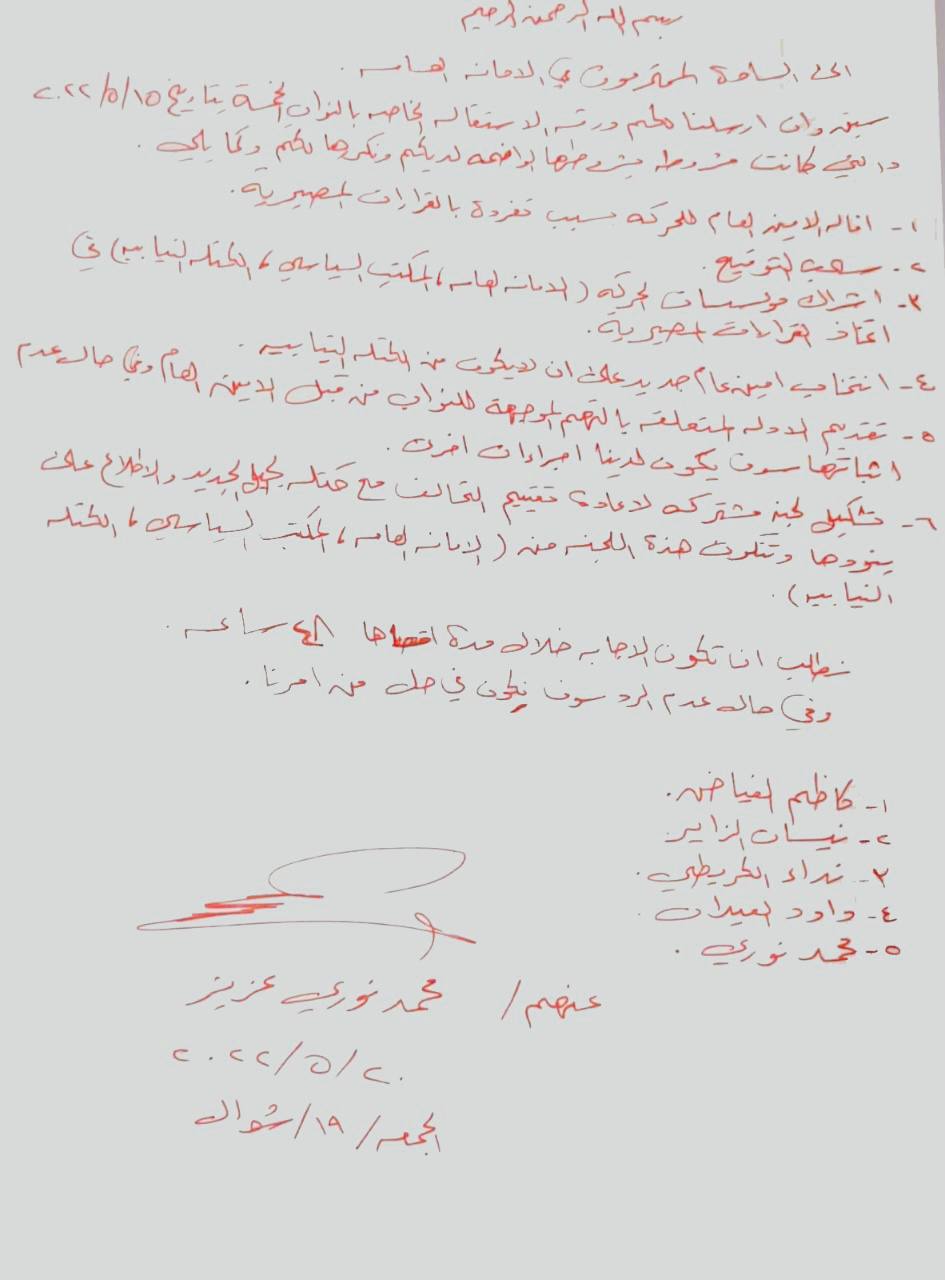 بسم الله الرحمن الرحيم
الى السادة المحترمون في الامانه العامه .
سبق وان ارسلنا لكم ورقه الاستقاله الخاصه بالنواب الخمسة بتاريخ ٢٠٢٢/٥/١٥
والتي كانت مشروطه بشروطها الواضحه لديكم ونكررها لكم وكما يلي .
١- اقاله الامين العام للحركه بسبب تفرده بالقرارات المصيرية .
٢- سحب التوقيع .
٣- اشراك مؤسسات الحركه ( الامانه العامه ، المكتب السياسي ، الكتله النيابيه) في
اتخاذ القرارات المصيرية .
٤- انتخاب امين عام جديد على ان لايكون من الكتله النيابيه .
٥- تقديم الادله المتعلقه بالتهم الموجهة للنواب من قبل الامين العام وفي حال عدم
اثباتها سوف يكون لدينا اجراءات اخرى .
٦- تشكيل لجنه مشتركه لاعادة تقييم التحالف مع كتله الجيل الجديد والاطلاع على
بنودها وتتكون هذة اللجنه من ( الامانه العامه ، المكتب السياسي ، الكتله
النيابيه) .
نطلب ان تكون الاجابه خلال مدة اقصاها ٤٨ ساعه .
وفي حال عدم الرد سوف نكون في حل من امرنا .
١- كاظم الفياض .
٢- نيسان الزاير
٣- نداء الكريطي .
٤- داود العيدان .
٥- محمد نوري .
عنهم / محمد نوري عزيز
٢٠٢٢/٥/٢٠
الجمعه / ١٩ / شوال